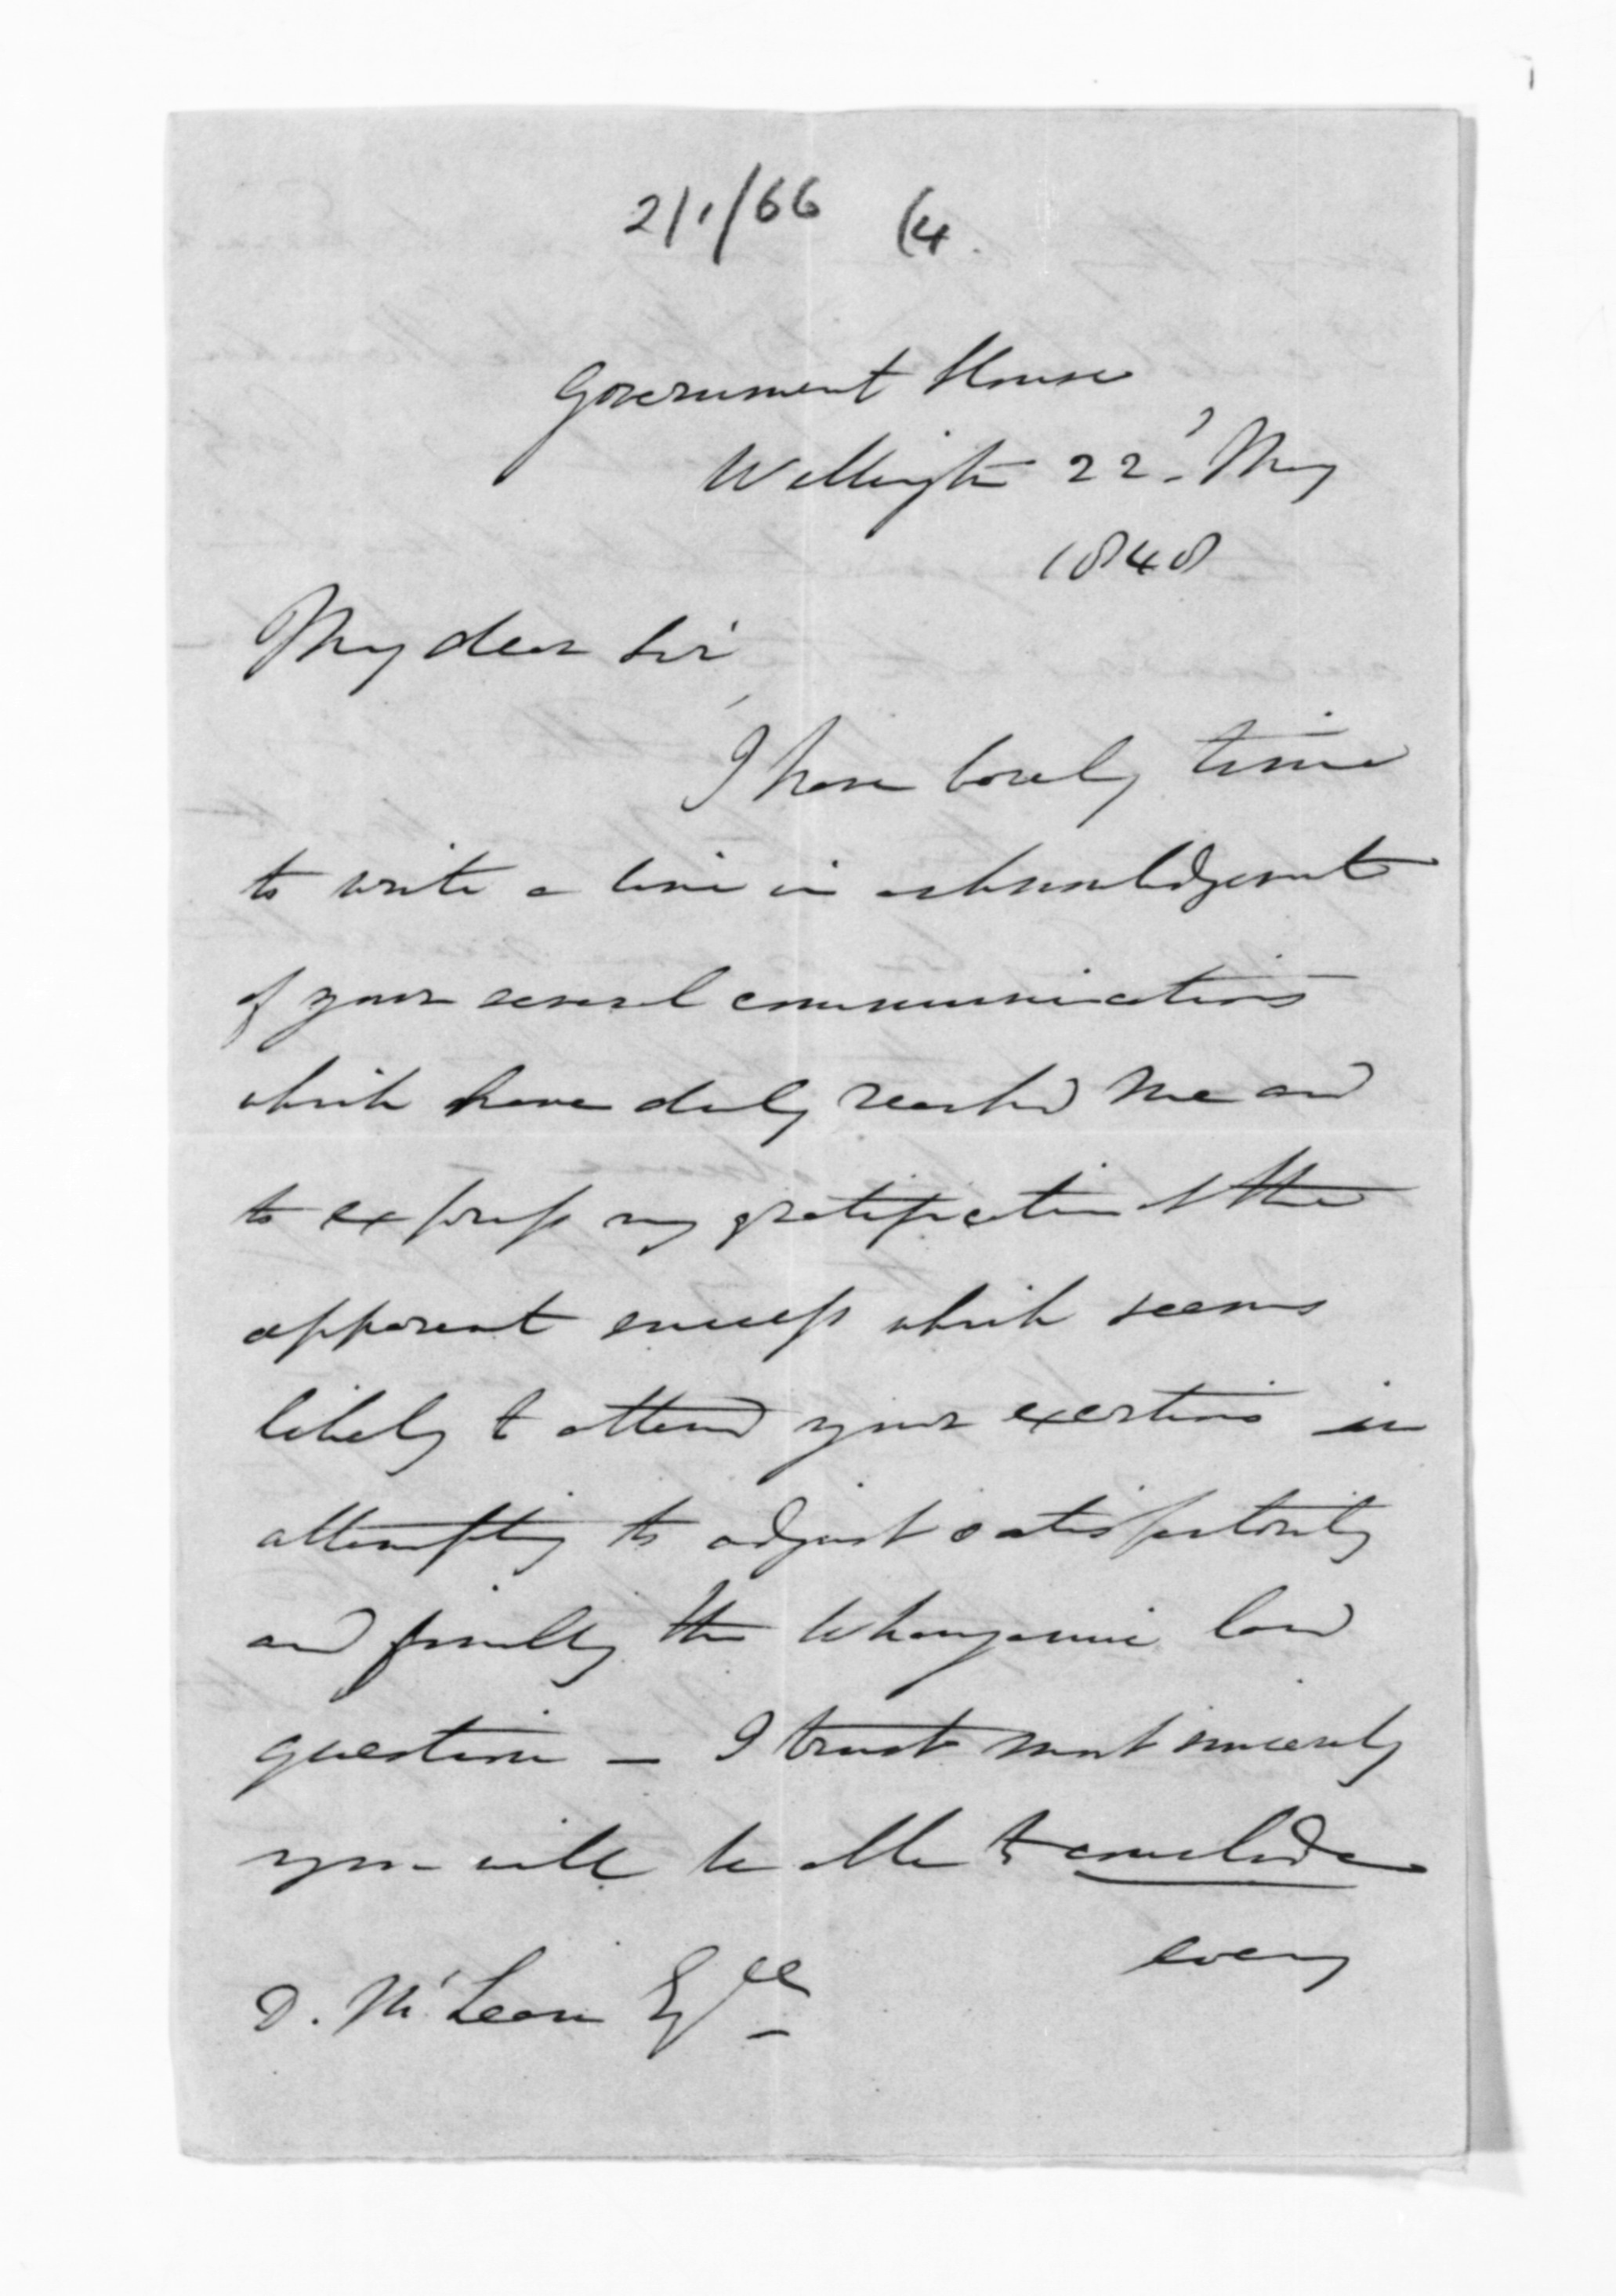 2/1/66 (4.
Government House
Wellington 22d May
1848
My dear Sir
I have barely time
to write a line in acknowledgement
of your several communications
which have duly reached me and
to express my gratification at the
apparent success which seems
likely to attend your exertions in
attempting to adjust satisfactorily
and finally the Whanganui land
question — I trust most sincerely
you will be able to conclude
every
D. McLean Esqre